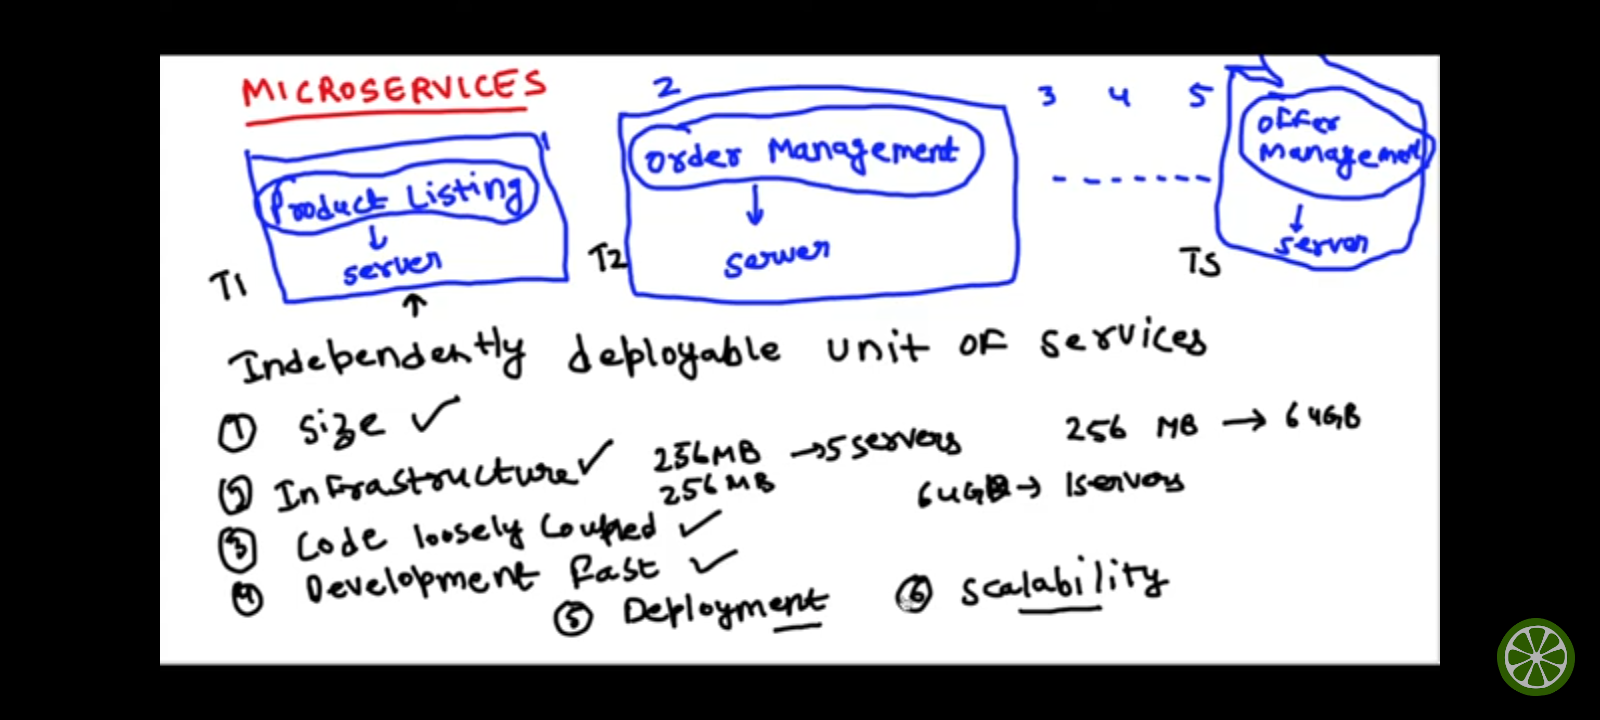 MICROSERVICES
2 3 4 5
Product Listing
server
T1
Order Management
server
T2
Offer
Management
server
T5
Independently deployable unit of services
① Size ✓
256 MB → 64GB
② Infrastructure ✓ 256MB → 5 servers
256 MB
64GB → 1 servers
③ Code loosely Coupled ✓
④ Development fast ✓
⑤ Deployment
⑥ Scalability